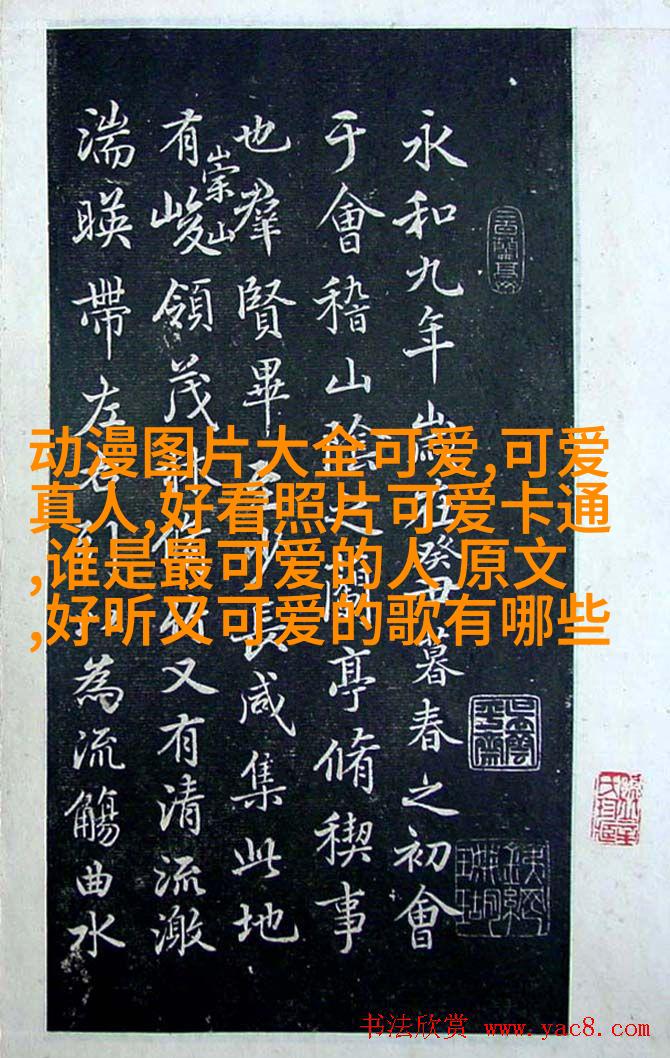 永和九年歲在癸丑暮春之初會
于會稽山陰之蘭亭脩禊事
也羣賢畢至少長咸集此地
有崇山峻領茂林脩竹又有清流激
湍暎帶左右引以為流觴曲水
动漫图片大全可爱,可爱
真人,好看照片可爱卡通
,谁是最可爱的人 原文
,好听又可爱的歌有哪些
书法欣赏 www.yac8.com